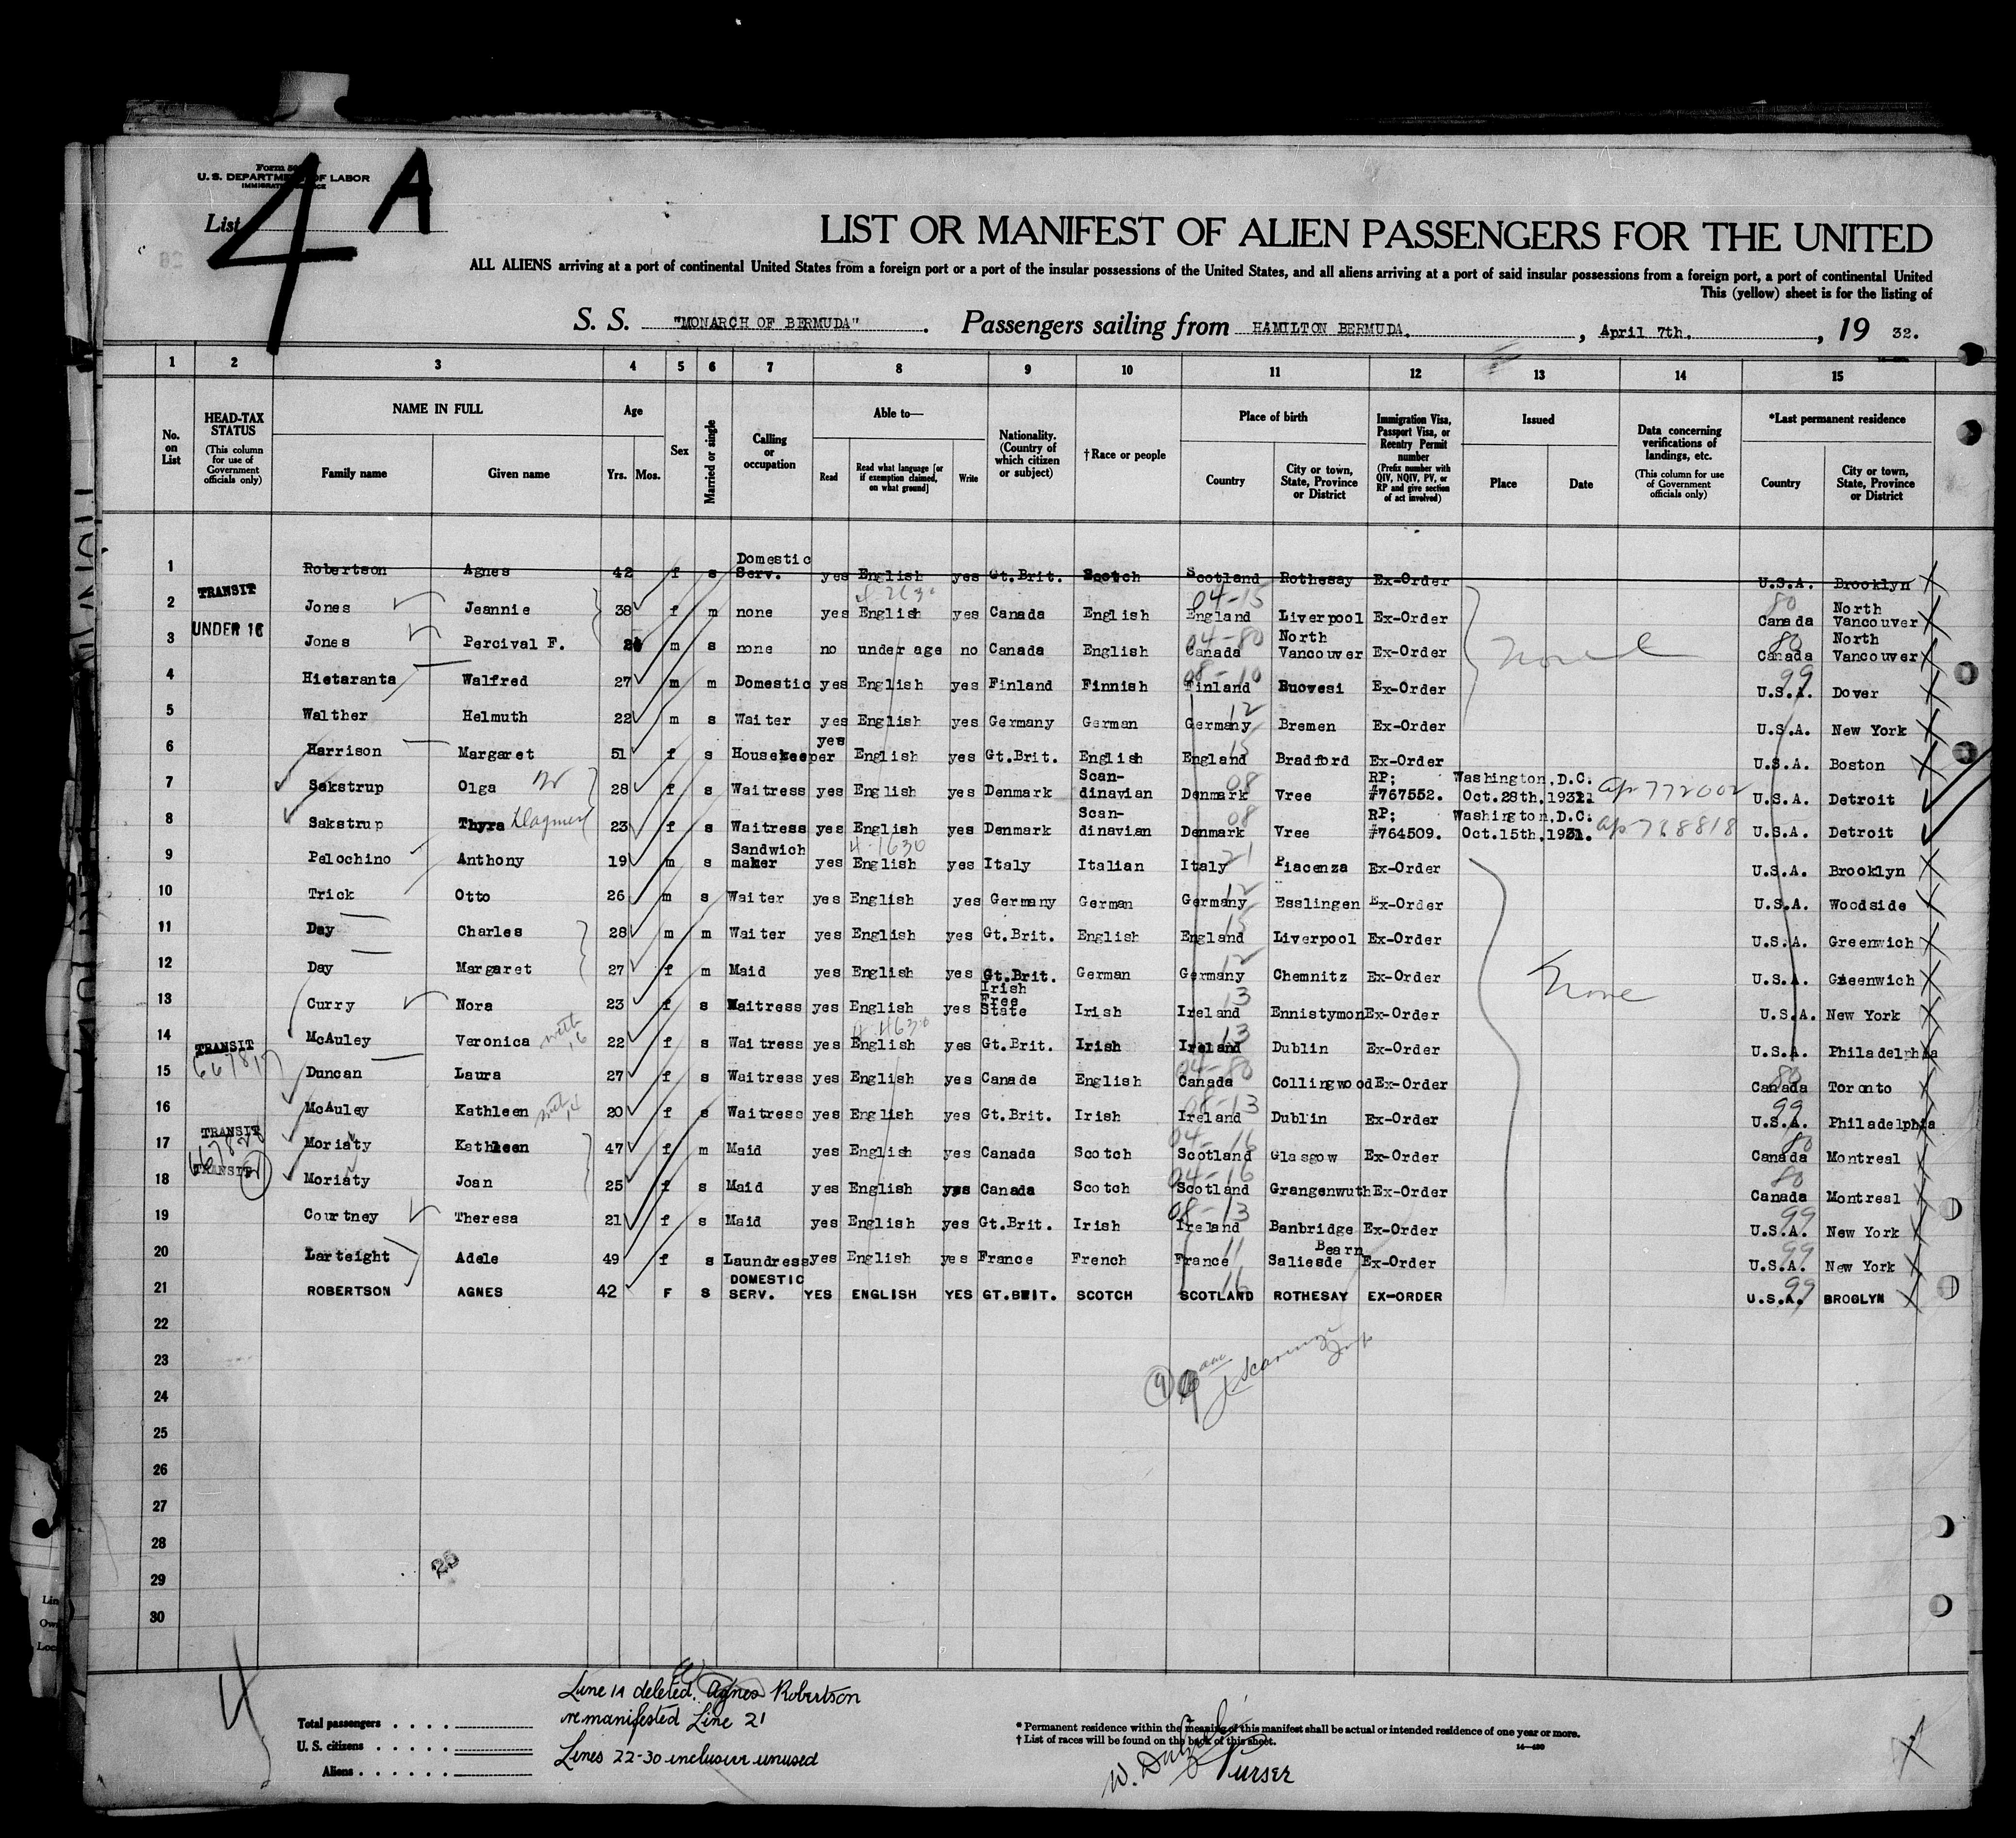 Form 500
U. S. DEPARTMENT OF LABOR
IMMIGRATION SERVICE
List 4 A
LIST OR MANIFEST OF ALIEN PASSENGERS FOR THE UNITED
ALL ALIENS arriving at a port of continental United States from a foreign port or a port of the insular possessions of the United States, and all aliens arriving at a port of said insular possessions from a foreign port, a port of continental United
This (yellow) sheet is for the listing of
S. S. "MONARCH OF BERMUDA". Passengers sailing from HAMILTON BERMUDA., April 7th., 19 32.
1 2 3 4 5 6 7 8 9 10 11 12 13 14 15
No. on List
HEAD-TAX STATUS (This column for use of Government officials only)
NAME IN FULL
Family name
Given name
Age
Yrs. Mos.
Sex
Married or single
Calling or occupation
Able to—
Read
Read what language [or if exemption claimed, on what ground]
Write
Nationality. (Country of which citizen or subject)
†Race or people
Place of birth
Country
City or town, State, Province or District
Immigration Visa, Passport Visa, or Reentry Permit number (Prefix number with QIV, NQIV, PV, or RP and give section of act involved)
Issued
Place
Date
Data concerning verifications of landings, etc. (This column for use of Government officials only)
*Last permanent residence
Country
City or town, State, Province or District
1 Robertson Agnes 42 f s Domestic Serv. yes English yes Gt.Brit. Scotch Scotland Rothesay Ex-Order U.S.A. Brooklyn
2 TRANSIT Jones Jeannie 38 f m none yes English yes Canada English 04-15 England Liverpool Ex-Order 80 Canada North Vancouver
3 UNDER 16 Jones Percival F. m s none no under age no Canada English 04-80 Canada North Vancouver Ex-Order None 80 Canada North Vancouver
4 Hietaranta Walfred 27 m m Domestic yes English yes Finland Finnish 08-10 Finland Ruovesi Ex-Order 99 U.S.A. Dover
5 Walther Helmuth 22 m s Waiter yes English yes Germany German 12 Germany Bremen Ex-Order U.S.A. New York
6 Harrison Margaret 51 f s Housekeeper yes English yes Gt.Brit. English 15 England Bradford Ex-Order U.S.A. Boston
7 Sakstrup Olga 28 f s Waitress yes English yes Denmark Scandinavian 08 Denmark Vree RP; #767552. Washington,D.C. Oct.28th.1931. ap 772002 U.S.A. Detroit
8 Sakstrup Thyra Dagmer 23 f s Waitress yes English yes Denmark Scandinavian 08 Denmark Vree RP; #764509. Washington,D.C. Oct.15th.1931. ap 768818 U.S.A. Detroit
9 Pelochino Anthony 19 m s Sandwich maker yes 4-1630 English yes Italy Italian 21 Italy Piacenza Ex-Order U.S.A. Brooklyn
10 Trick Otto 26 m s Waiter yes English yes Germany German 12 Germany Esslingen Ex-Order U.S.A. Woodside
11 Day Charles 28 m m Waiter yes English yes Gt.Brit. English 15 England Liverpool Ex-Order U.S.A. Greenwich
12 Day Margaret 27 f m Maid yes English yes Gt.Brit. German 12 Germany Chemnitz Ex-Order None U.S.A. Greenwich
13 Curry Nora 23 f s Waitress yes English yes Irish Free State Irish 13 Ireland Ennistymon Ex-Order U.S.A. New York
14 McAuley Veronica with 16 22 f s Waitress yes English yes Gt.Brit. Irish 13 Ireland Dublin Ex-Order U.S.A. Philadelphia
15 TRANSIT 667817 Duncan Laura 27 f s Waitress yes English yes Canada English 04-80 Canada Collingwood Ex-Order 80 Canada Toronto
16 McAuley Kathleen with 14 20 f s Waitress yes English yes Gt.Brit. Irish 08-13 Ireland Dublin Ex-Order 99 U.S.A. Philadelphia
17 TRANSIT Moriaty Kathleen 47 f m Maid yes English yes Canada Scotch 04-16 Scotland Glasgow Ex-Order 80 Canada Montreal
18 TRANSIT 2 Moriaty Joan 25 f s Maid yes English yes Canada Scotch 04-16 Scotland Grangenwuth Ex-Order 80 Canada Montreal
19 Courtney Theresa 21 f s Maid yes English yes Gt.Brit. Irish 08-13 Ireland Banbridge Ex-Order 99 U.S.A. New York
20 Larteight Adele 49 f s Laundress yes English yes France French 11 France Saliesde Bearn Ex-Order 99 U.S.A. New York
21 ROBERTSON AGNES 42 F S DOMESTIC SERV. YES ENGLISH YES GT.BRIT. SCOTCH 16 SCOTLAND ROTHESAY EX-ORDER 99 U.S.A. BROOLYN
22
23
24
25
26
27
28
29
30
Total passengers
U. S. citizens
Aliens
Line 1 deleted. Agnes Robertson
remanifested Line 21
Lines 22-30 inclusive unused
* Permanent residence within the meaning of this manifest shall be actual or intended residence of one year or more.
† List of races will be found on the back of this sheet.
Purser